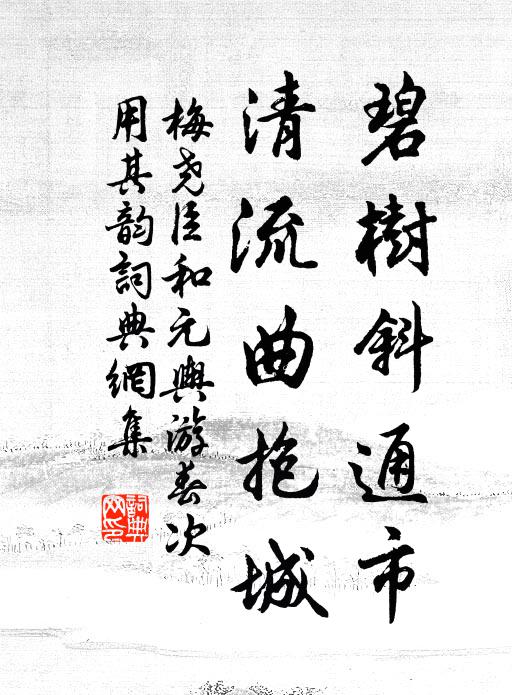 碧樹斜通市
清流曲抱城
梅尧臣和元輿游春次
用其韵詞典網集
詞典
网印